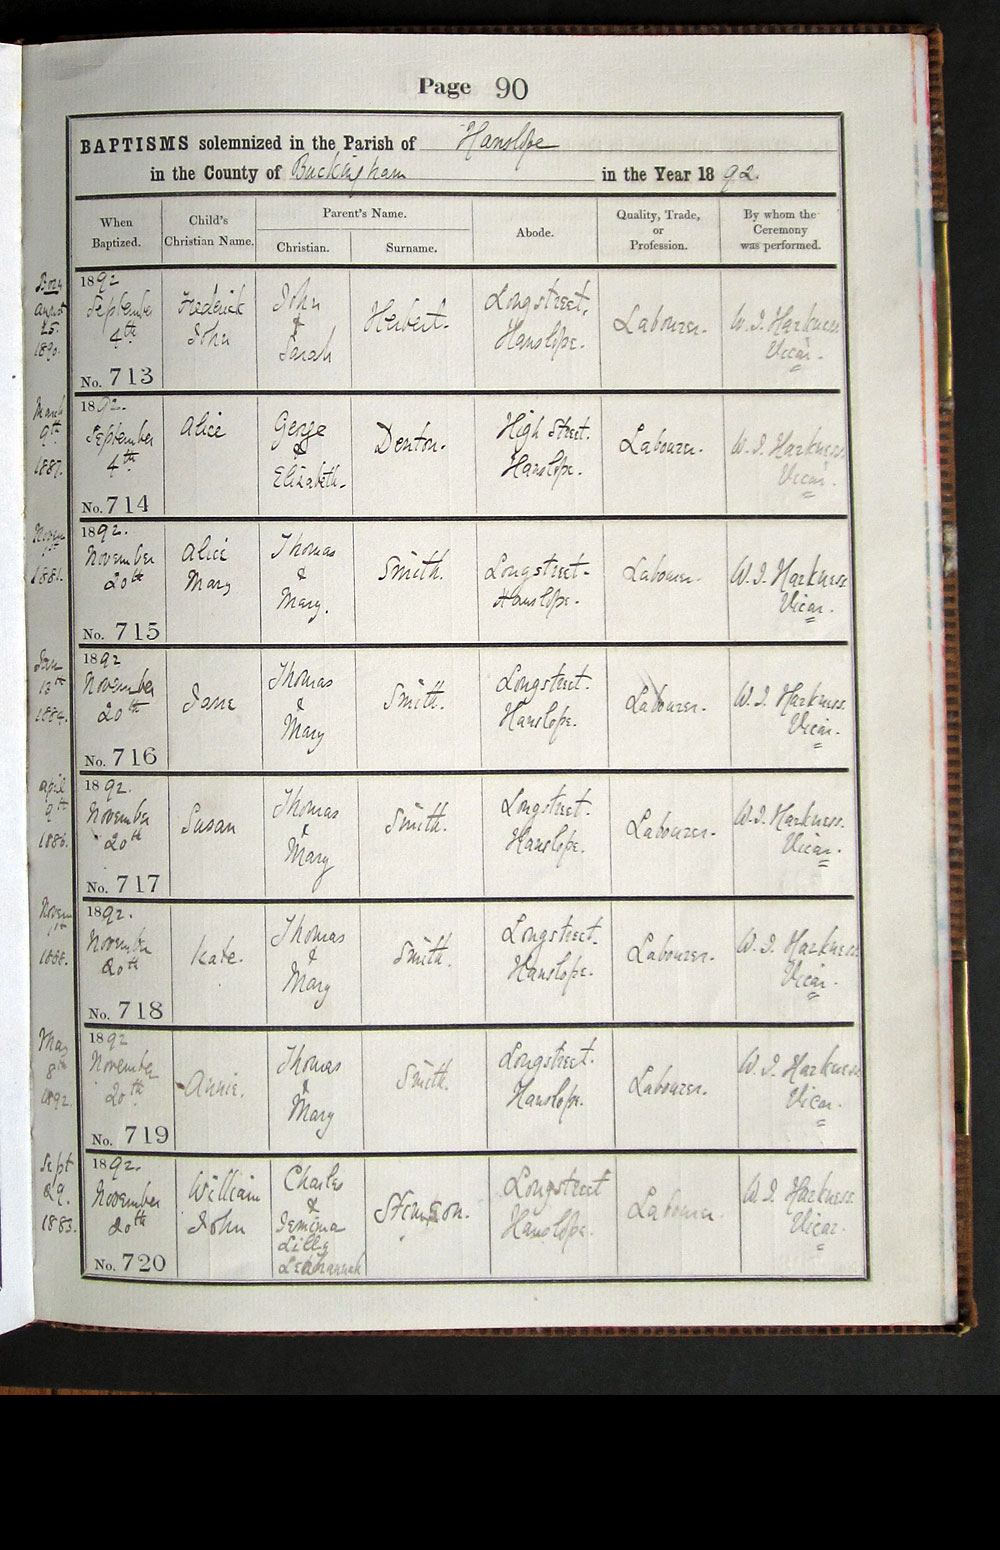 Page 90
BAPTISMS solemnized in the Parish of Hanslope
in the County of Buckingham in the Year 1892.
When Baptized.
Child's Christian Name.
Parent's Name.
Christian.
Surname.
Abode.
Quality, Trade, or Profession.
By whom the Ceremony was performed.
Born
August
25.
1890.
1892
September
4th
No. 713
Frederick
John
John
&
Sarah
Herbert.
Longstreet.
Hanslope.
Labourer.
W. J. Harkness
Vicar.
March
9th
1887.
1892.
September
4th
No. 714
Alice
George
&
Elizabeth.
Denton.
High Street.
Hanslope.
Labourer.
W. J. Harkness
Vicar.
Novem
1881.
1892.
November
20th
No. 715
Alice
Mary
Thomas
&
Mary.
Smith.
Longstreet.
Hanslope.
Labourer.
W. J. Harkness
Vicar.
Jan
13th
1884.
1892
November
20th
No. 716
Jane
Thomas
&
Mary
Smith.
Longstreet.
Hanslope.
Labourer.
W. J. Harkness.
Vicar.
April
9th
1886.
1892.
November
20th
No. 717
Susan
Thomas
&
Mary
Smith.
Longstreet.
Hanslope.
Labourer.
W. J. Harkness.
Vicar.
Novem
1888.
1892.
November
20th
No. 718
Kate.
Thomas
&
Mary
Smith.
Longstreet.
Hanslope.
Labourer.
W. J. Harkness
Vicar.
May
8th
1892.
1892
November
20th
No. 719
Annie.
Thomas
&
Mary
Smith.
Longstreet.
Hanslope.
Labourer.
W. J. Harkness
Vicar.
Sept
29.
1883.
1892.
November
20th
No. 720
William
John
Charles
&
Jemima
Lilly
Stimson.
Longstreet
Hanslope.
Labourer.
W. J. Harkness
Vicar.